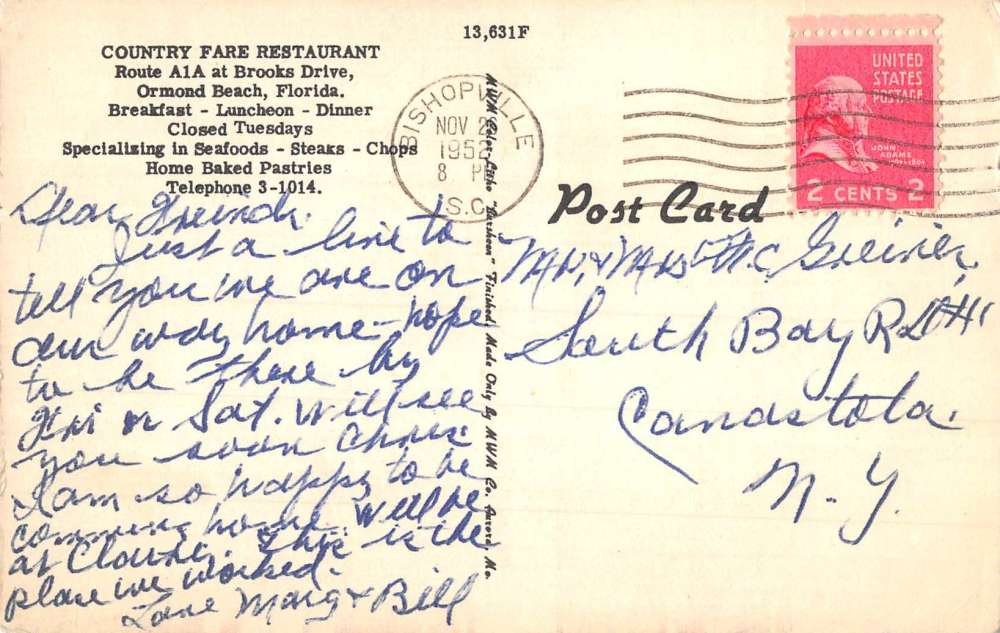 13,631F
COUNTRY FARE RESTAURANT
Route A1A at Brooks Drive,
Ormond Beach, Florida.
Breakfast - Luncheon - Dinner
Closed Tuesdays
Specializing in Seafoods - Steaks - Chops
Home Baked Pastries
Telephone 3-1014.
Dear Freinds.
Just a line to
tell you we are on
our way home - hope
to be there by
Fri or Sat. will see
you soon
I am so happy to be
comming home. Will be
at This is the
place we worked.
Love Marg & Bill
MWM Color-Litho "Varsheen" Finished, Made Only By MWM Co. Aurora, Mo.
BISHOPVILLE
NOV 2
195
8 P
S.C.
UNITED
STATES
POSTAGE
JOHN
ADAMS
2 CENTS 2
Post Card
Mr. & Mrs W.C. Greiner,
South Bay RD #1
Canastota.
N.Y.